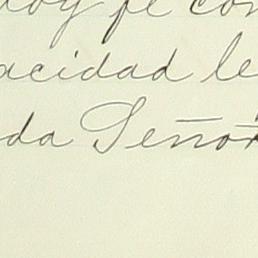 doy fe con
acidad le
da Señor